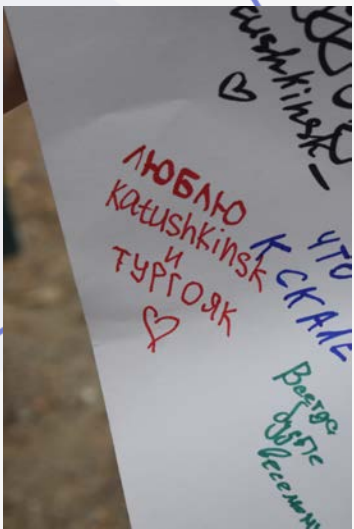 ushkinsk_
ЛЮБЛЮ
katushkinsk
и
ТУРГОЯК
ЧТО
К СКАЛЕ
Всегда
будьте
веселыми